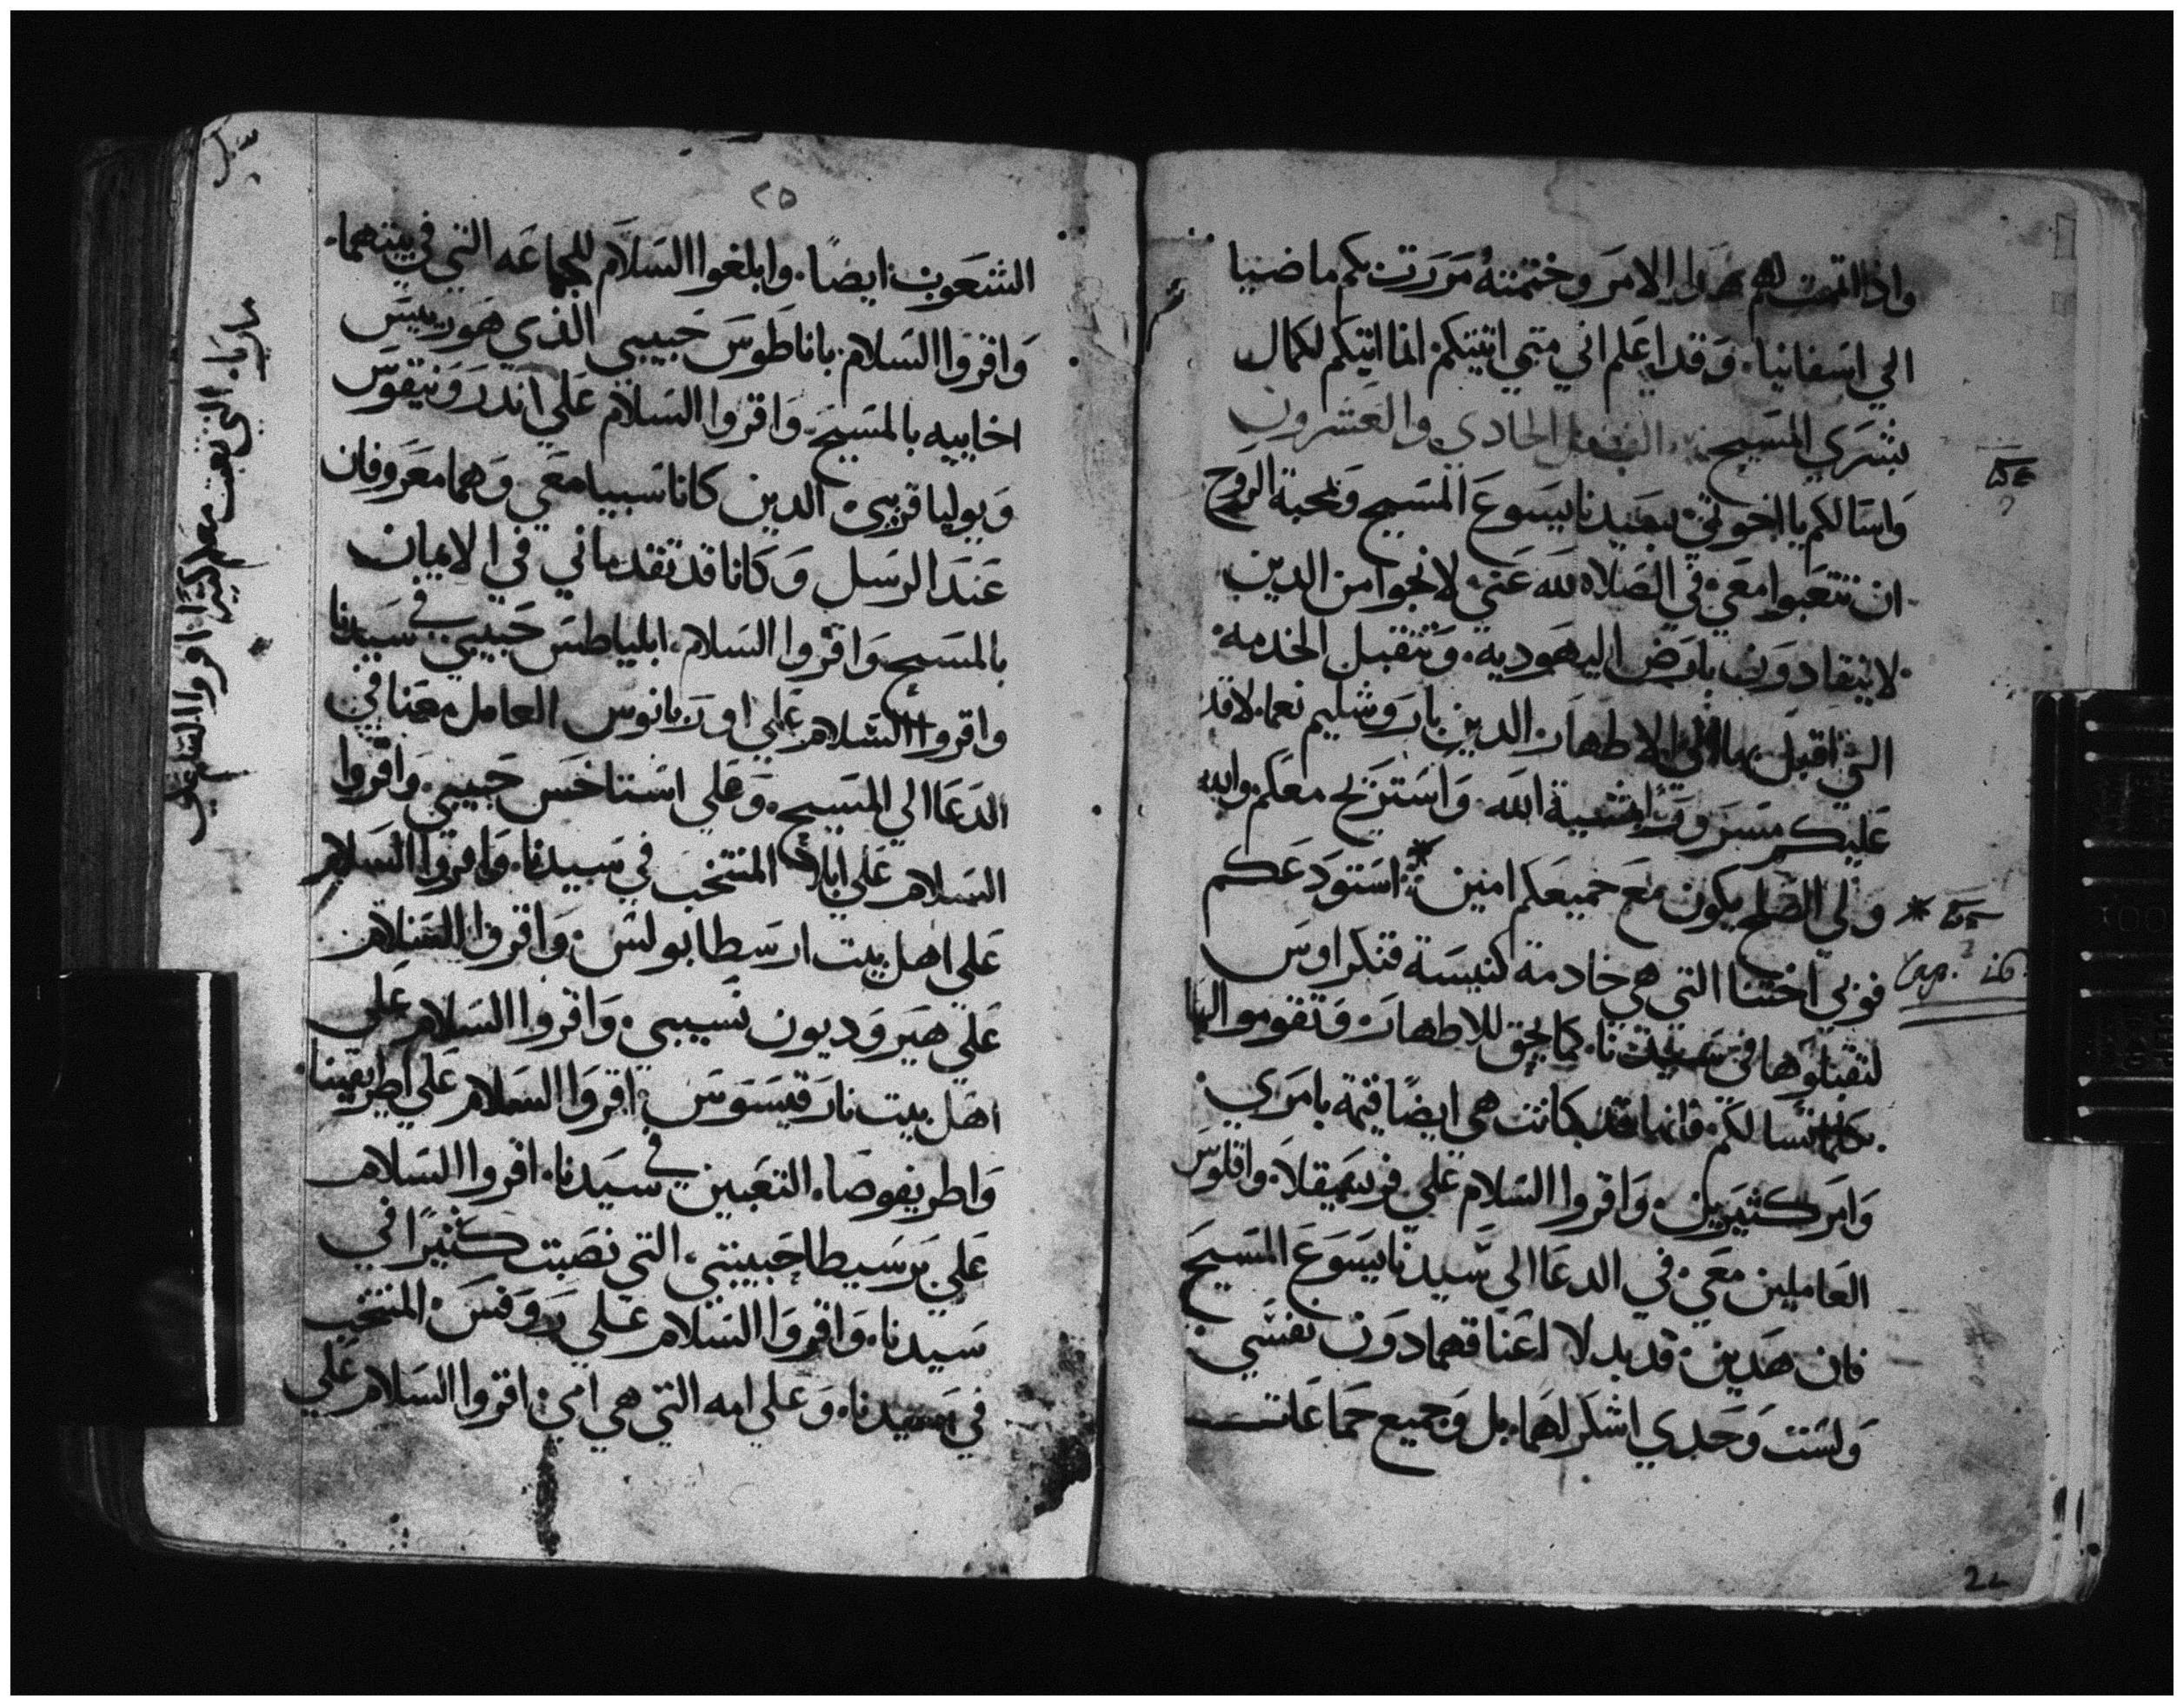 واذا اتممت لهم هذا الامر وختمته مررت بكم ماضيا
الي اسفانيا. وقد اعلم اني متي اتيتكم انما اتيكم لكمال
بشري المسيح الفصل الحادي والعشرون
واسالكم يا اخوتي بسيدنا يسوع المسيح وبمحبة الروح
ان تتعبوا معي في الصلاه لله عني لانجوا من الدين
لا ينقادون بارض اليهودية. وتتقبل الخدمة
التي اقبل بها الي الاطهار الدين باروشليم نعما لاقدم
عليكم مسرورا بمشية الله واستريح معكم والله
ولي الصلح يكون مع جميعكم امين استودعكم
فوبي اختنا التي هي خادمة كنيسة قنكراوس
لتقبلوها في سيدنا. كما يحق للاطهار وتقوموا لها
بكلما تسالكم فانها قد كانت هي ايضا قيمة بامري
وامر كثيرين. واقروا السلام علي فريسقلا واقلوس
العاملين معي في الدعا الي سيدنا يسوع المسيح
فان هدين قد بدلا اعناقهما دون نفسي
ولست وحدي اشكر لهما بل وجميع جماعات
* Cap. 16
22
٢٥
الشعوب ايضا. وابلغوا السلام للجماعه التي في بيتهما.
واقروا السلام باناطوس حبيبي الذي هو رييس
اخاييه بالمسيح. واقروا السلام علي اندرونيقوس
ويوليا قريبي الدين كانا سبيا معي وهما معروفان
عند الرسل وكانا قد تقدماني في الايمان
بالمسيح واقروا السلام ابلياطس حبيبي في سيدنا
واقروا السلام علي اوربانوس العامل معنا في
الدعا الي المسيح. وعلي استاخس حبيبي. واقروا
السلام علي ابلا المنتخب في سيدنا. واقروا السلام
علي اهل بيت ارسطابولس. واقروا السلام
علي هيروديون نسيبي. واقروا السلام علي
اهل بيت نارقيسوس اقروا السلام علي اطريفينا.
واطريفوصا. التعبين في سيدنا. اقروا السلام
علي برسيطا حبيبتي. التي نصبت كثيرا في
سيدنا. واقروا السلام علي روفس المنتخب
في سيدنا. وعلي امه التي هي امي. اقروا السلام علي
مريا. التي تعبت معكم كثيرا اقروا السلام علي